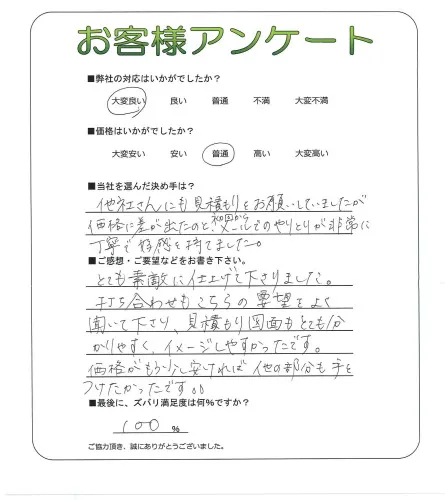 お客様アンケート
■弊社の対応はいかがでしたか？
大変良い 良い 普通 不満 大変不満
■価格はいかがでしたか？
大変安い 安い 普通 高い 大変高い
■当社を選んだ決め手は？
他社さんにも見積もりをお願いしていましたが
価格に差が出たのと、初回からメールでのやりとりが非常に
丁寧で好感を持てました。
■ご感想・ご要望などをお書き下さい。
とても素敵に仕上げて下さりました。
打ち合わせもこちらの要望をよく
聞いて下さり、見積もり図面もとても分
かりやすく、イメージしやすかったです。
価格がもう少し安ければ他の部分も手を
つけたかったです。。
■最後に、ズバリ満足度は何％ですか？
100 %
ご協力頂き、誠にありがとうございました。